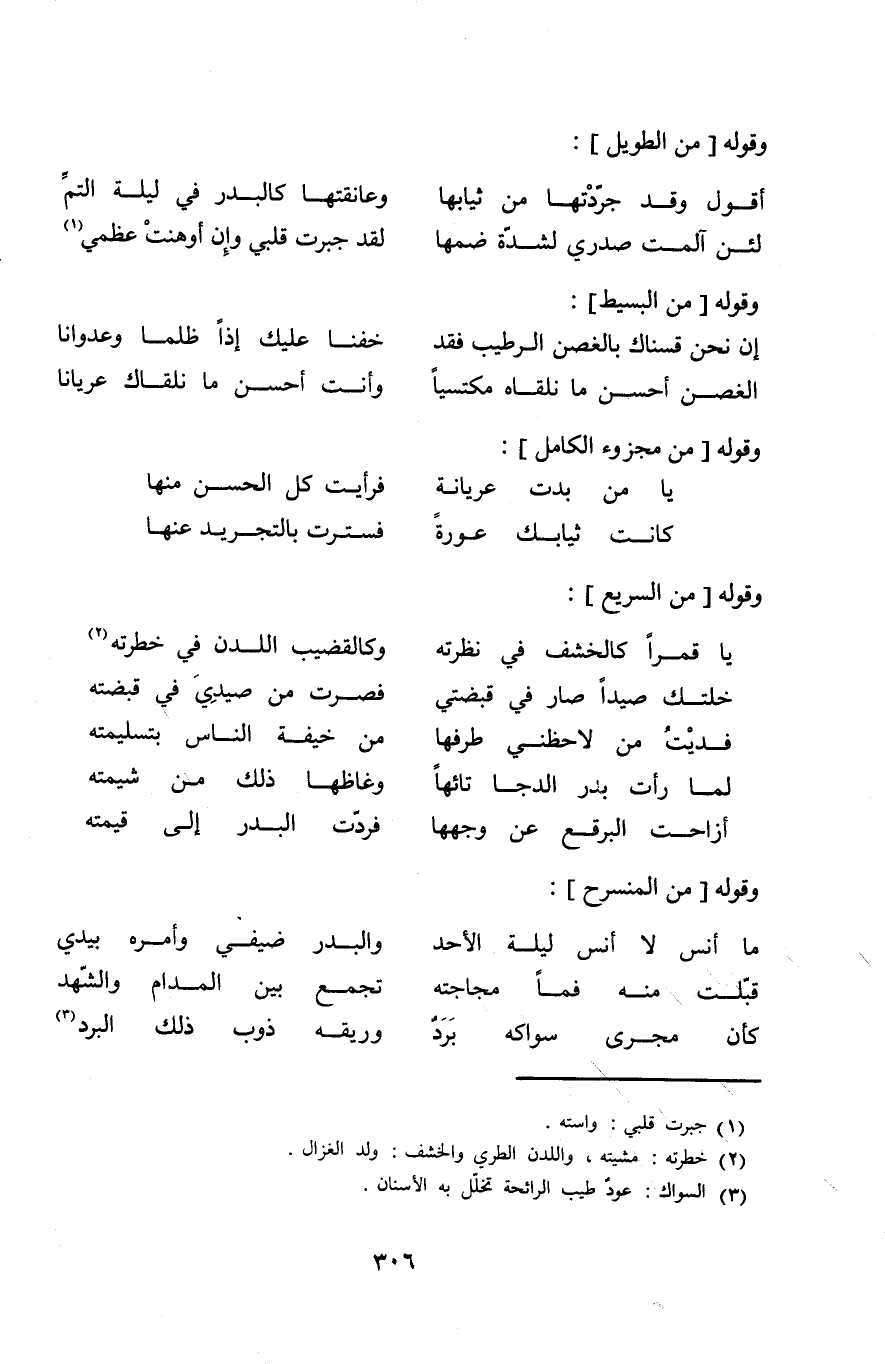 وقوله [ من الطويل ] :
أقول وقد جرّدْتها من ثيابها وعانقتها كالبدر في ليلة التمِّ
لئن آلمت صدري لشدّة ضمها لقد جبرت قلبي وإن أوهنتْ عظمي(١)
وقوله [ من البسيط] :
إن نحن قسناك بالغصن الرطيب فقد خفنا عليك إذاً ظلما وعدوانا
الغصن أحسن ما نلقاه مكتسياً وأنت أحسن ما نلقاك عريانا
وقوله [ من مجزوء الكامل ] :
يا من بدت عريانة فرأيت كل الحسن منها
كانت ثيابك عورةً فسترت بالتجريد عنها
وقوله [ من السريع ] :
يا قمراً كالخشف في نظرته وكالقضيب اللدن في خطرته(٢)
خلتك صيداً صار في قبضتي فصرت من صيدِيَ في قبضته
فديْتُ من لاحظني طرفها من خيفة الناس بتسليمته
لما رأت بدر الدجا تائهاً وغاظها ذلك من شيمته
أزاحت البرقع عن وجهها فردّت البدر إلى قيمته
وقوله [ من المنسرح ] :
ما أنس لا أنس ليلة الأحد والبدر ضيفي وأمره بيدي
قبّلت منه فماً مجاجته تجمع بين المدام والشّهد
كأن مجرى سواكه بَرَدٌ وريقه ذوب ذلك البرد(٣)
(١) جبرت قلبي : واسته .
(٢) خطرته : مشيته ، واللدن الطري والخشف : ولد الغزال .
(٣) السواك : عودٌ طيب الرائحة تخلّل به الأسنان .
٣٠٦